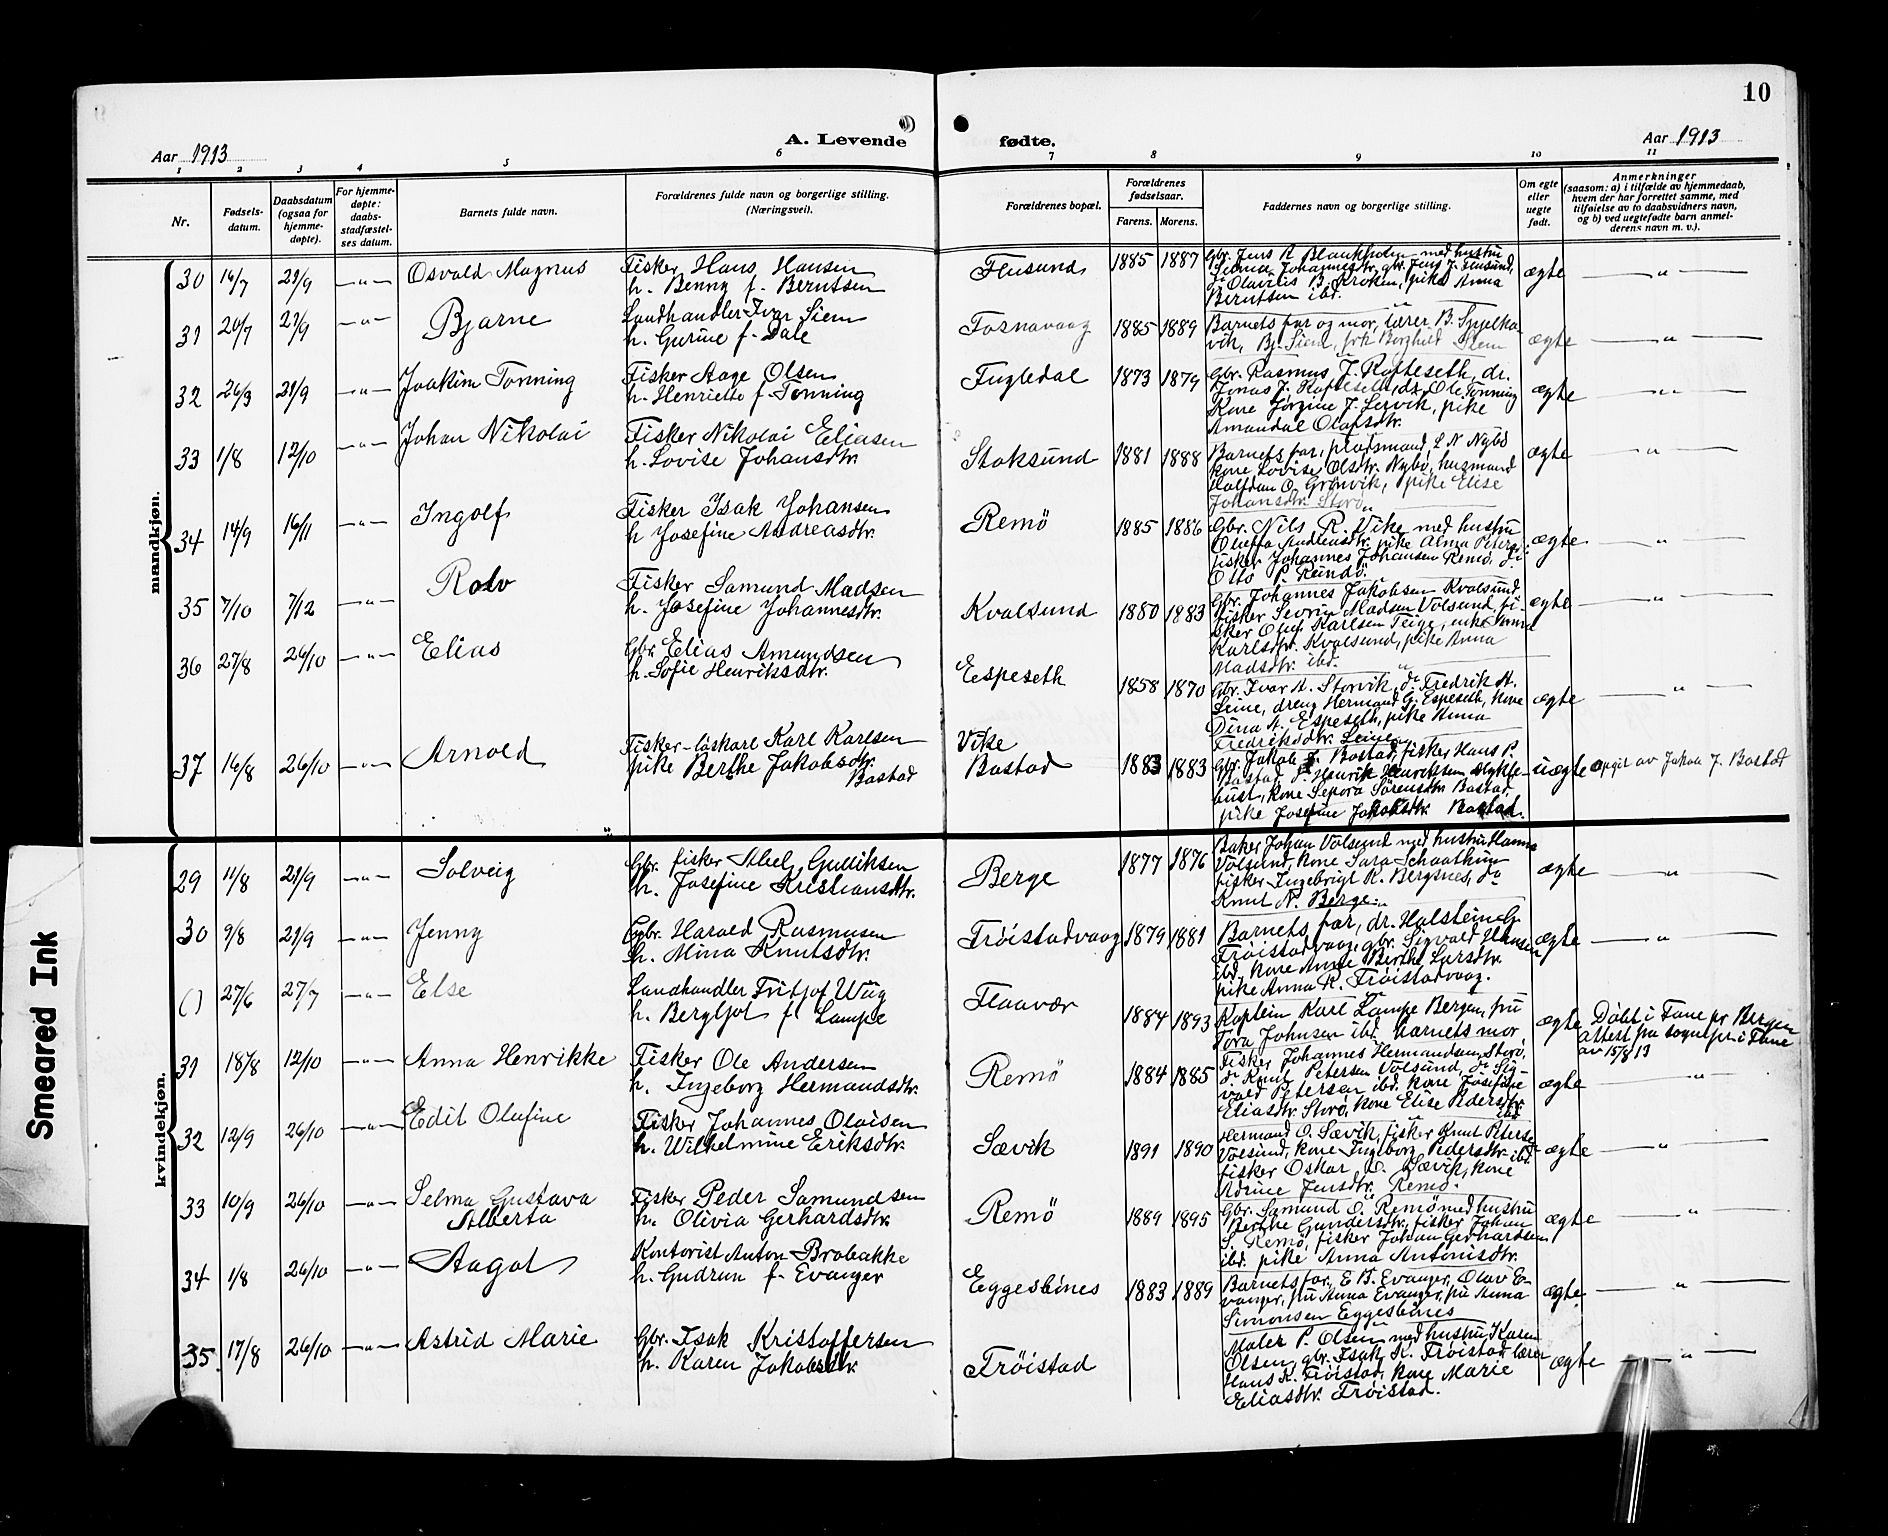 10
Aar 1913
A. Levende fødte.
Aar 1913
1 2 3 4 5 6 7 8 9 10 11
Nr.
Fødsels-
datum.
Daabsdatum
(ogsaa for
hjemme-
døpte).
For hjemme-
døpte:
daabs-
stadfæstel-
ses datum.
Barnets fulde navn.
Forældrenes fulde navn og borgerlige stilling.
(Næringsvei).
Forældrenes bopæl.
Forældrenes
fødselsaar.
Farens. Morens.
Faddernes navn og borgerlige stilling.
Om egte
eller
uegte
født.
Anmerkninger
(saasom: a) i tilfælde av hjemmedaab,
hvem der har forrettet samme, med
tilføielse av to daabsvidners navn,
og b) ved uegtefødte barn anmel-
derens navn m. v.).
mandkjøn.
30 16/7 21/9 -"- Osvald Magnus
Fisker Hans Hansen
h. Benny f. Berntsen
Flusund 1885 1887
Gbr. Jens A Blankholm med hustru
Johannesdtr, gbr. Jens J. Flusund,
B. Kroken, pike Anna
Berntsen ibd.
ægte — " —
31 20/7 21/9 -"- Bjarne
Landhandler Ivar Siem
h. Gurine f. Dale
Fosnavaag 1885 1889
Barnets far og mor, lærer B. Spjelka-
vik, Bj. Siem, frk Borghild Siem
ægte — " —
32 26/3 21/9 -"- Joakim Tonning
Fisker Aage Olsen
h. Henriette f. Tonning
Fugledal 1873 1879
Gbr. Rasmus J. Røfteseth, dr.
Jonas J. Røfteseth, dr. Ole Tonning
Kone Jørgine J. Lervik, pike
Amandal Olafsdtr.
ægte — " —
33 1/8 12/10 -"- Johan Nikolai
Fisker Nikolai Eliasen
h. Lovise Johansdtr.
Stoksund 1881 1888
Barnets far, pladsmand, L N Nybø
kone Lovise Olsdtr. Nybø, husmand
Halfdan O. Grønvik, pike Elise
Johansdtr. Storø
ægte — " —
34 14/9 16/11 -"- Ingolf
Fisker Isak Johansen
h Josefine Andreasdtr.
Remö 1885 1886
Gbr. Nils R. Vike med hustru
Oluffa Andreasdtr. pike Alma Peters
fisker Johannes Johansen Remö, fi
Otto P. Reindö.
ægte — " —
35 7/10 7/12 -"- Rolv
Fisker Samund Madsen
h. Josefine Johannesdtr.
Kvalsund 1880 1883
Gbr. Johannes Jakobsen Kvalsund,
fisker Severin Madsen Volsund, fi-
sker Oluf Karlsen Teige, enke Anna
Karlsdtr. Kvalsund, pike Anna
Madsdtr. ibd.
ægte — " —
36 27/8 26/10 -"- Elias
Gbr. Elias Amundsen
h. Sofie Henriksdtr.
Espeseth 1858 1870
Gbr. Ivar A. Storvik, do Fredrik A.
Leine, dreng Hermand G. Espeseth, kone
Dina A. Espeseth, pike Anna
Fredriksdtr. Leine
ægte — " —
37 16/8 26/10 -"- Arnold
Fisker-løskarl Karl Karlsen
pike Berthe Jakobsdtr.
Bostad
Vike
Bostad 1883 1883
Gbr. Jakob J. Bostad, fisker Hans P.
Bostad, do Henrik Henriksen Mykle-
bust, kone Sepora Sörensdtr Bostad,
pike Josefine Jakobsdtr. Bostad.
uægte opgit av Jakob J. Bostad
kvindekjøn.
29 11/8 21/9 -"- Solveig
Gbr. fisker Abel Gulliksen
h. Josefine Kristiansdtr.
Berge 1877 1876
Baker Johan Volsund med hustru Hanna
Volsund, kone Sara Schaathun
fisker Ingebrigt R. Bergsnes, do
Knut N. Berge.
ægte — " —
30 9/8 21/9 -"- Jenny
Gbr. Harald Rasmusen
h. Mina Knutsdtr.
Tröistadvaag 1879 1881
Barnets far, dr. Halstein G.
Tröistadvaag, gbr. Sigvald Hansen
ibd, kone Anne Berthe Larsdtr.
pike Anna R. Tröistadvaag.
ægte — " —
() 27/6 27/7 -"- Else
Landhandler Fritjof Wiig
h. Bergljot f. Lampe
Flaavær 1884 1893
Kaptein Karl Lampe Bergen, fru
Tora Johnsen ibd. barnets mor
ægte Döbt i Fane pr Bergen
attest fra sognepr. i Fane
av 15/8 13
31 18/8 12/10 -"- Anna Henrikke
Fisker Ole Andersen
h. Ingeborg Hermandsdtr.
Remö 1884 1885
Fisker Johannes Hermandsen Storö,
do Knut Petersen Volsund, do Sig-
vald Petersen ibd. kone Josefine
Eliasdtr. Storö, kone Elise Pedersdtr.
ibd
ægte "
32 12/9 26/10 -"- Edit Olufine
Fisker Johannes Olaisen
h. Wilhelmine Eriksdtr.
Sævik 1891 1890
Hermand O. Sævik, fisker Knut Peterse
Volsund, kone Ingeborg Pedersdtr. ibd.
fisker Oskar O. Sævik, kone
Adrine Jensdtr. Remö.
ægte — " —
33 10/9 26/10 -"- Selma Gustava
Alberta
Fisker Peder Samundsen
h. Olivia Gerhardsdtr.
Remö 1889 1895
Gbr. Samund O. Remö med hustru
Berthe Gundersdtr, fisker Johan
S. Remö, fisker Johan Gerhardsen
ibd. pike Anna Antonisdtr.
ægte — " —
34 1/8 26/10 -"- Aagot
Kontorist Anton Brobakke
h. Gudrun f. Evanger
Eggesbönes 1883 1889
Barnets far, E B. Evanger, Olav E-
vanger, fru Anna Evanger, fru Anna
Simonsen Eggesbönes
ægte — " —
35 17/8 26/10 -"- Astrid Marie
Gbr. Isak Kristoffersen
h. Karen Jakobsdtr.
Tröistad
Maler P. Olsen med hustru Karen
Olsen, gbr. Isak K. Tröistad lærer
Hans K. Tröistad, kone Marie
Eliasdtr. Tröistad.
ægte — " —
Smeared Ink